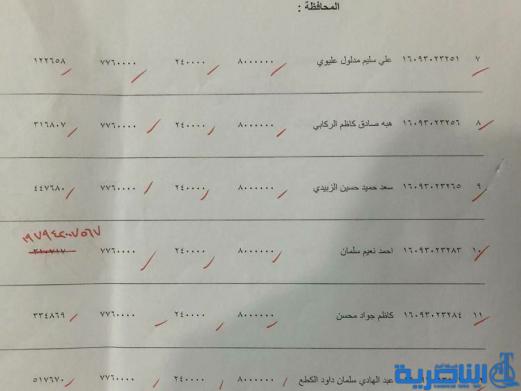 المحافظة :
٧ ١٦٠٩٣٠٢٣٢٥١ علي سليم مدلول عليوي ٨٠٠٠٠٠٠ ٢٤٠٠٠٠ ٧٧٦٠٠٠٠ ١٢٢٦٥٨
٨ ١٦٠٩٣٠٢٣٢٥٦ هبه صادق كاظم الركابي ٨٠٠٠٠٠٠ ٢٤٠٠٠٠ ٧٧٦٠٠٠٠ ٣١٦٨٠٧
٩ ١٦٠٩٣٠٢٣٢٦٥ سعد حميد حسين الزبيدي ٨٠٠٠٠٠٠ ٢٤٠٠٠٠ ٧٧٦٠٠٠٠ ٤٤٧٦٨٠
١٠ ١٦٠٩٣٠٢٣٢٨٣ احمد نعيم سلمان ٨٠٠٠٠٠٠ ٢٤٠٠٠٠ ٧٧٦٠٠٠٠
١١ ١٦٠٩٣٠٢٣٢٨٤ كاظم جواد محسن ٨٠٠٠٠٠٠ ٢٤٠٠٠٠ ٧٧٦٠٠٠٠ ٣٣٤٨٦٩
عبد الهادي سلمان داود الكطع ٨٠٠٠٠٠٠ ٢٤٠٠٠٠ ٧٧٦٠٠٠٠ ٥١٧٦٧٠
الناصرية